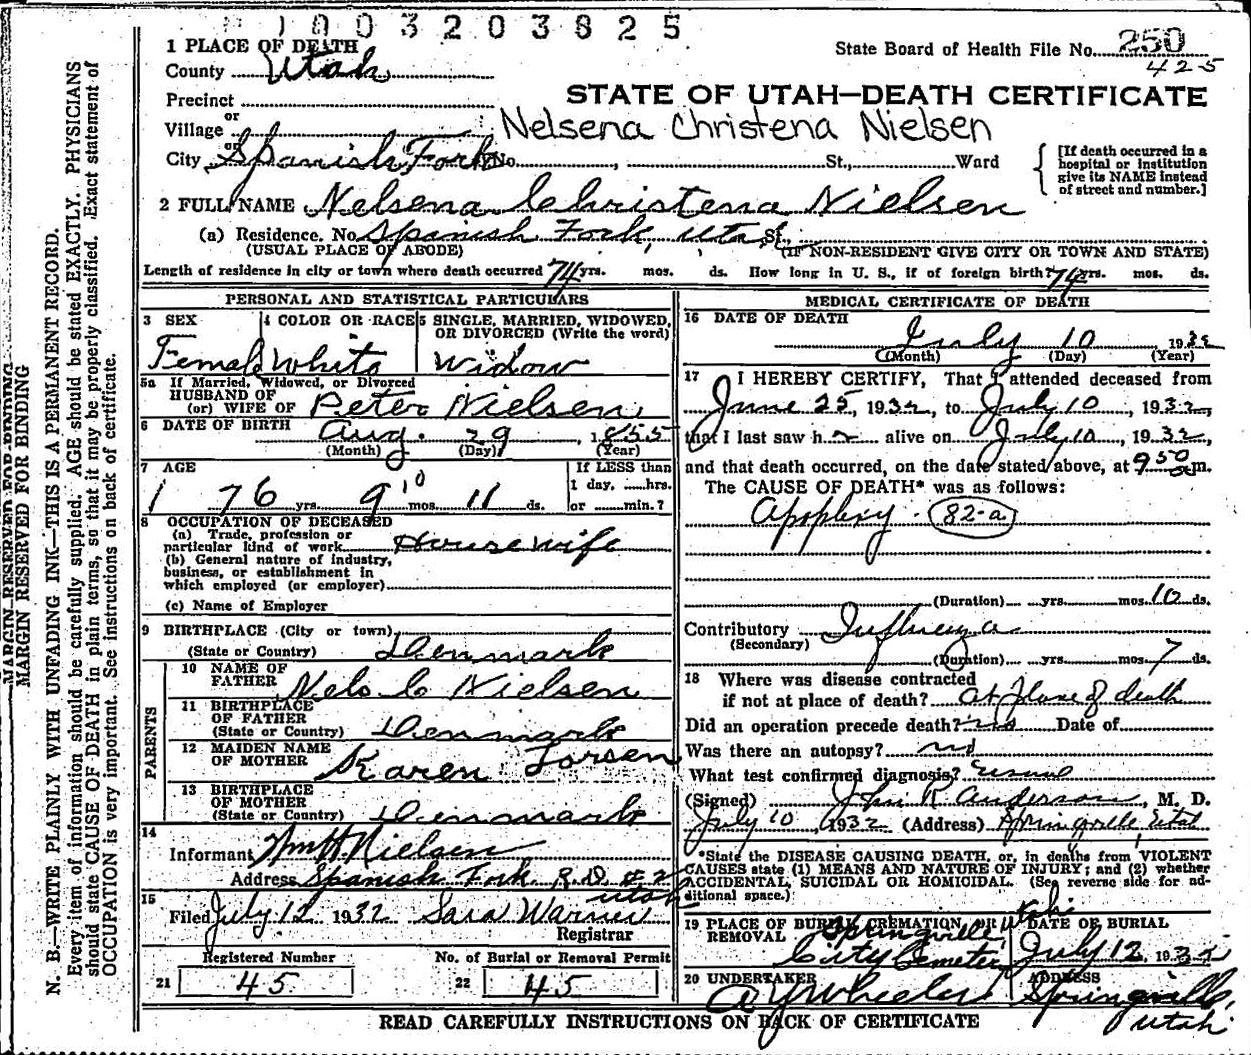 1003203825
1 PLACE OF DEATH
State Board of Health File No. 250
425
County Utah
Precinct
or
Village
STATE OF UTAH—DEATH CERTIFICATE
Nelsena Christena Nielsen
or
City Spanish Fork No. , St., Ward
[If death occurred in a
hospital or institution
give its NAME instead
of street and number.]
2 FULL NAME Nelsena Christena Nielsen
(a) Residence. No. Spanish Fork, Utah St.,
(USUAL PLACE OF ABODE) (IF NON-RESIDENT GIVE CITY OR TOWN AND STATE)
Length of residence in city or town where death occurred 74 yrs. mos. ds. How long in U. S., if of foreign birth? 74 yrs. mos. ds.
PERSONAL AND STATISTICAL PARTICULARS
3 SEX 4 COLOR OR RACE 5 SINGLE, MARRIED, WIDOWED,
OR DIVORCED (Write the word)
Female White Widow
5a If Married, Widowed, or Divorced
HUSBAND OF
(or) WIFE OF Peter Nielsen
6 DATE OF BIRTH Aug. 29, 1855
(Month) (Day) (Year)
7 AGE If LESS than
1 day, hrs.
76 yrs. 9 10 mos. 11 ds. or min.?
8 OCCUPATION OF DECEASED
(a) Trade, profession or
particular kind of work Housewife
(b) General nature of industry,
business, or establishment in
which employed (or employer)
(c) Name of Employer
9 BIRTHPLACE (City or town)
(State or Country) Denmark
PARENTS
10 NAME OF
FATHER Nels C Nielsen
11 BIRTHPLACE
OF FATHER
(State or Country) Denmark
12 MAIDEN NAME
OF MOTHER Karen Larsen
13 BIRTHPLACE
OF MOTHER
(State or Country) Denmark
14
Informant Wm H. Nielsen
Address Spanish Fork R.D. #2
Utah
15
Filed July 12 1932 Sara Warner
Registrar
Registered Number No. of Burial or Removal Permit
21 45 22 45
MEDICAL CERTIFICATE OF DEATH
16 DATE OF DEATH
July 10 1932
(Month) (Day) (Year)
17 I HEREBY CERTIFY, That I attended deceased from
June 25, 1932, to July 10, 1932,
that I last saw h er alive on July 10, 1932,
and that death occurred, on the date stated above, at 9 50 m.
The CAUSE OF DEATH* was as follows:
Apoplexy. 82-a
(Duration) yrs. mos. 10 ds.
Contributory Influenza
(Secondary)
(Duration) yrs. mos. 7 ds.
18 Where was disease contracted
if not at place of death? at place of death
Did an operation precede death? no Date of
Was there an autopsy? no
What test confirmed diagnosis? usual
(Signed) John R Anderson, M. D.
July 10, 1932 (Address) Springville, Utah
*State the DISEASE CAUSING DEATH, or, in deaths from VIOLENT
CAUSES state (1) MEANS AND NATURE OF INJURY; and (2) whether
ACCIDENTAL, SUICIDAL OR HOMICIDAL. (See reverse side for ad-
ditional space.)
19 PLACE OF BURIAL, CREMATION, OR DATE OF BURIAL
REMOVAL Springville, Utah
City Cemetery July 12, 1932
20 UNDERTAKER ADDRESS
A Y Wheeler Springville,
Utah
READ CAREFULLY INSTRUCTIONS ON BACK OF CERTIFICATE
MARGIN RESERVED FOR BINDING
MARGIN RESERVED FOR BINDING
N. B.—WRITE PLAINLY WITH UNFADING INK—THIS IS A PERMANENT RECORD.
Every item of information should be carefully supplied. AGE should be stated EXACTLY. PHYSICIANS
should state CAUSE OF DEATH in plain terms, so that it may be properly classified. Exact statement of
OCCUPATION is very important. See instructions on back of certificate.